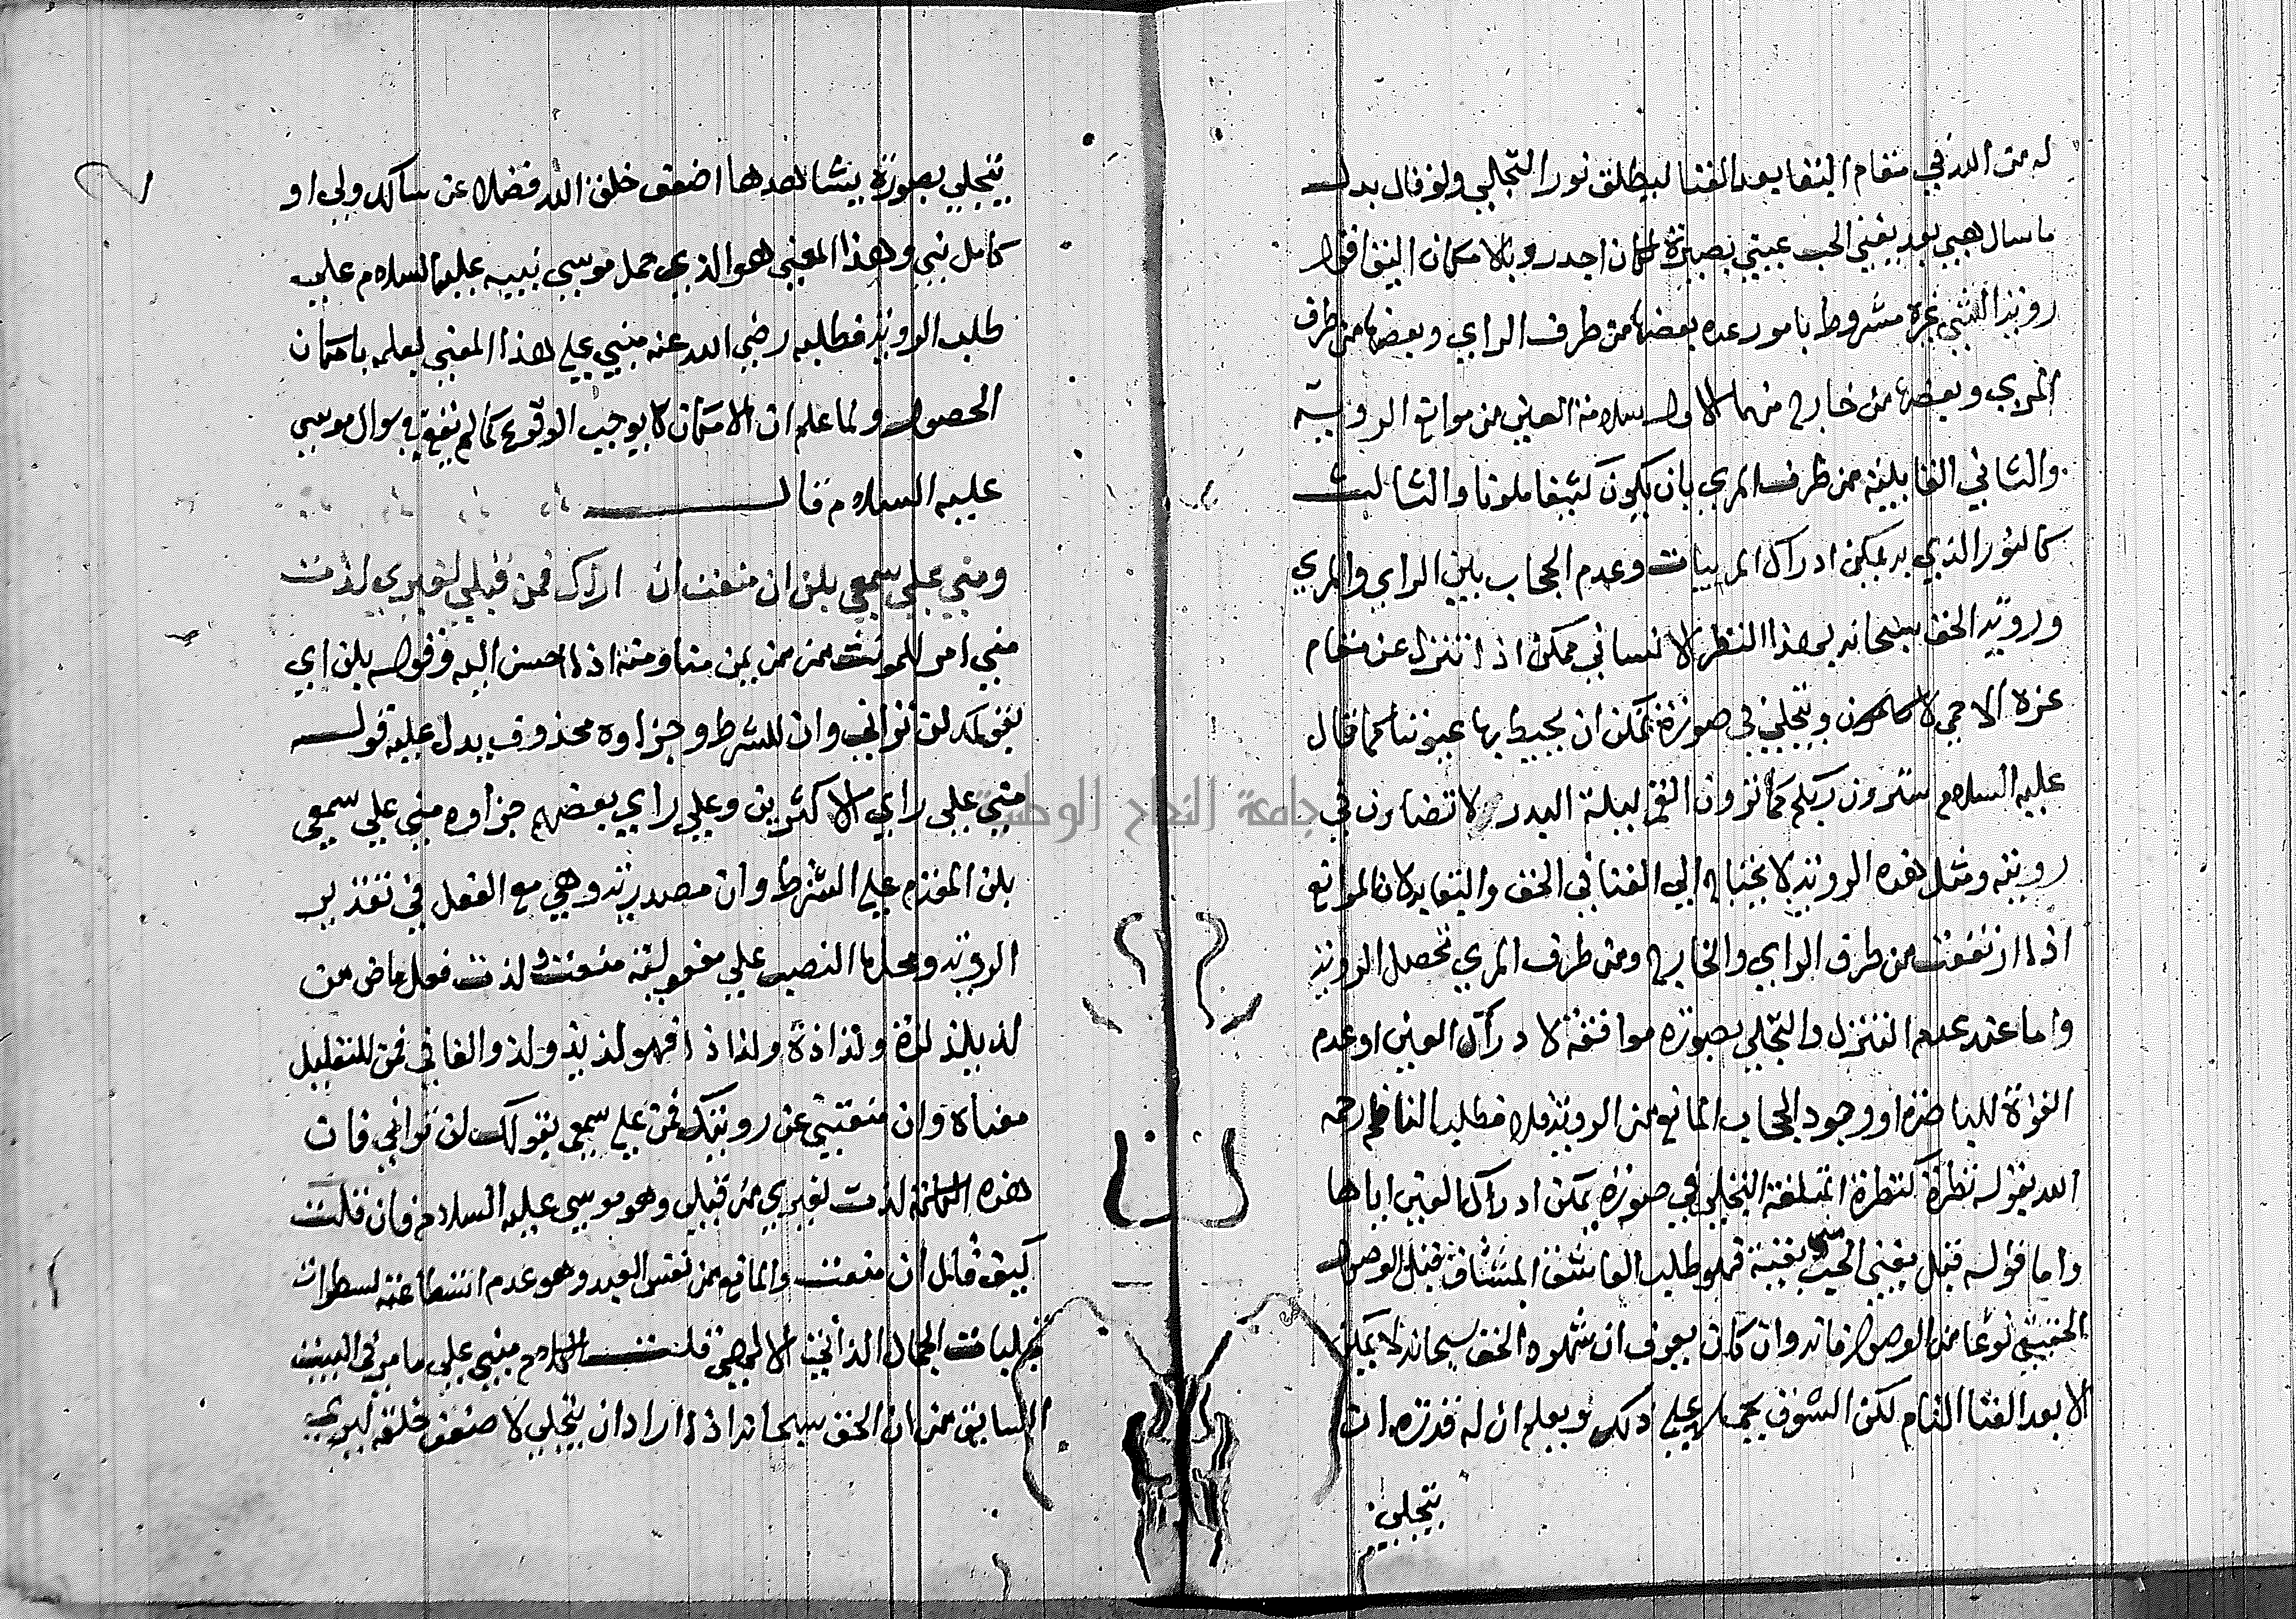 له من الله في مقام البقا بعد الفنا ليطلق نور التجلي ولو قال بدل
ما سال هبي بعد يفني الحب عيني بصيرة لكان اجدر وبالامكان اليق اقول
روية الشي غرة مشروط بامور عده بعضها من طرف الراي وبعضها من طرف
المري وبعضها من خارج منهما الاول سلامة العين من موانع الروية
والثاني القابلية من ظرف المري بان يكون كثيفا ملونا والثالث
كالنور الذي به يمكن ادراك المرييات وعدم الحجاب بين الراي والمري
وروية الحق سبحانه بهذا النظر الانساني ممكن اذا تنزل عن مقام
عزه الاحمي وتجلي في صورة يمكن ان يحيط بها عيوننا كما قال
عليه السلام سترون ربكم كما ترون القمر ليلة البدر لا تضارون في
رويته ومثل هذه الروية لا يحتاج الي الفنا في الحق والبقا به لان الموانع
اذا ارتفعت من طرف الراي والخارج ومن طرف المري تحصل الروية
واما عند عدم التنزل والتجلي بصورة موافقة لادراك العين او عدم
القوة للباصرة او وجود الحجاب المانع من الروية فلا فطلب الناظم رحمه
الله بقوله نظرة كنظرة المتلفتة التجلي في صورة يمكن ادراك العين اياها
واما قوله قبل يفني الحب مني بقية فهو طلب العاشق المشتاق قبل الوصول
الحقيقي نوعا من الوصول فانه وان كان يعرف ان شهود الحق سبحانه لا يمكن
الا بعد الفنا التام لكن الشوق يحمله علي ذلك ويعلم ان له قدرة ان
يتجلي
يتجلي بصورة يشاهدها اضعف خلق الله فضلا عن سالك ولي او
كامل نبي وهذا المعني هو الذي حمل موسي نبيه عليه السلام علي
طلب الروية فطلبه رضي الله عنه مبني علي هذا المعني لعلمه بامكان
الحصول ولما علم ان الامكان لا يوجب الوقوع كما لم يقع في سوال موسي
عليه السلام قال
ومني علي سمعي بلن ان منعت ان اراك فمن قبلي لغيري لذت
مني امر للمونث من من يمن منا ومنة اذا احسن اليه وقوله بلن اي
بقولك لن تراني وان للشرط وجزاوه محذوف يدل عليه قوله
مني علي راي الاكثرين وعلي راي بعضهم جزاوه مني علي سمعي
بلن المقدم علي الشرط وان مصدرية وهي مع الفعل في تقدير
الروية ومحلها النصب علي مفعولية منعت ولذت فعل ماض من
لذ يلذ لذة ولذاذة ولذاذا فهو لذيذ ولذ والفا في فمن للتعليل
معناه وان منعتيني عن رويتك فمن علي سمعي بقولك لن تراني فان
هذه الكلمة لذت لغيري من قبلي وهو موسي عليه السلام فان قلت
كيف قال ان منعت والمانع من نفس العبد وهو عدم استطاعته لسطوات
تجليات الجمال الذاتي الالهي قلت الكلام مبني علي ما مر في البيت
السابق من ان الحق سبحانه اذا اراد ان يتجلي لاضعف خلقه ليري
جامعة النجاح الوطنية